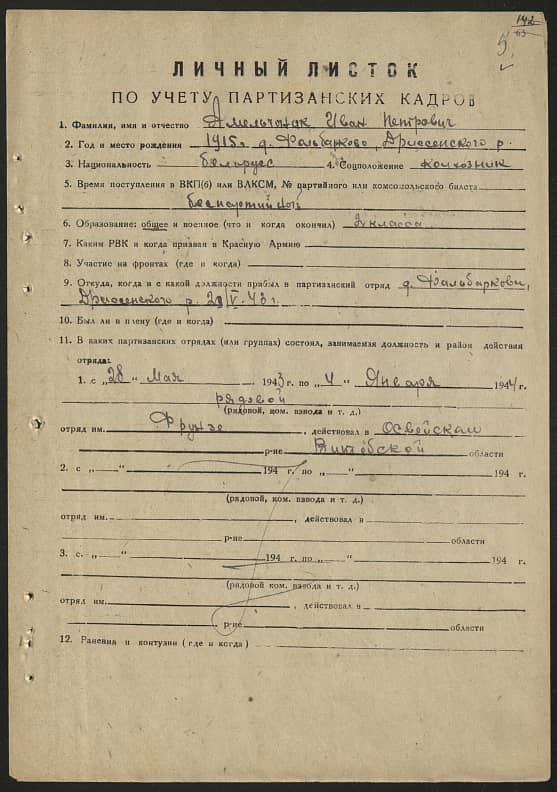 142
63
5
ЛИЧНЫЙ ЛИСТОК
ПО УЧЕТУ ПАРТИЗАНСКИХ КАДРОВ
1. Фамилия, имя и отчество Амельчонак Иван Петрович
2. Год и место рождения 1915г. д. Фальварково, Дриссенского р.
3. Национальность белорусс 4. Соцположение колхозник
5. Время поступления в ВКП(б) или ВЛКСМ, № партийного или комсомольского билета
беспартийный
6. Образование: общее и военное (что и когда окончил) 2 класса
7. Каким РВК и когда призван в Красную Армию
8. Участие на фронтах (где и когда)
9. Откуда, когда и с какой должности прибыл в партизанский отряд д. Фальваркови,
Дриссенского р. 28/V-43 г.
10. Был ли в плену (где и когда)
11. В каких партизанских отрядах (или группах) состоял, занимаемая должность и район действия
отряда:
1. с „28" Мая 1943 г. по „4" Января 1944 г.
рядовой
(рядовой, ком. взвода и т. д.)
отряд им. Фрунзе, действовал в Освейском
р-не Витебской области
2. с „ — " 194 г. по „ — " 194 г.
(рядовой, ком. взвода и т. д.)
отряд им. , действовал в
р-не области
3. с „ — " 194 г. по „ — " 194 г.
(рядовой ком. взвода и т. д.)
отряд им. , действовал в
р-не области
12. Ранения и контузии (где и когда)